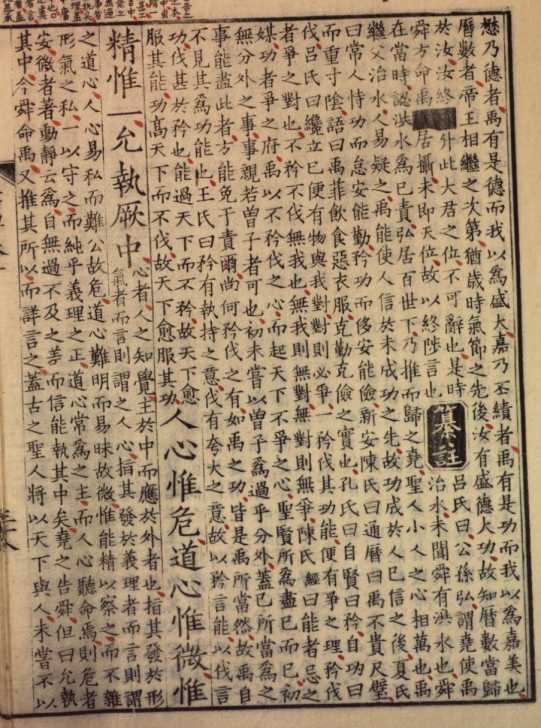 懋乃德者禹有是德而我以爲盛大嘉乃丕績者禹有是功而我以爲嘉美也
曆數者帝王相繼之次第猶歲時氣節之先後汝有盛德大功故知曆數當歸
於汝汝終升此大君之位不可辭也是時
舜方命禹居攝未即天位故以終陟言也
纂註
呂氏曰公孫弘謂堯使禹
治水未聞舜有洪水也舜
在當時認洪水爲已責弘居百世下乃推而歸之堯聖人小人之心相萬也禹
繼父治水人易疑之禹能使人信於未成功之先故功成於人已信之後夏氏
曰常人恃功而怠安能勤矜功而侈安能儉新安陳氏曰通曆曰禹不貴尺璧
而重寸陰語曰禹菲飮食惡衣服克勤克儉之實也孔氏曰自賢曰矜自功曰
伐呂氏曰纔立已便有物與我對對則必爭一矜伐其功能便有爭之理矜伐
者爭之對也不矜不伐無我也無我則無對無對則無爭陳氏經曰能者忌之
媒功者爭之府禹以不矜伐之心而起天下不爭之心聖賢所爲盡已而已初
無分外之事事親若曾子者可也初未嘗以曾子爲過乎分外蓋已所當爲之
事能盡此者方能免于責爾尚何矜伐之有如禹之功皆是禹所當然故禹自
不見其爲功能也王氏曰矜有執持之意伐有夸大之意故以矜言能以伐言
功伐甚於矜也能過天下而不矜故天下愈
服其能功高天下而不伐故天下愈服其功
人心惟危道心惟微惟
精惟一允執厥中
心者人之知覺主於中而應於外者也指其發於形
氣者而言則謂之人心指其發於義理者而言則謂
之道心人心易私而難公故危道心難明而易昧故微惟能精以察之而不雜
形氣之私一以守之而純乎義理之正道心常爲之主而人心聽命焉則危者
安微者著動靜云爲自無過不及之差而信能執其中矣堯之告舜但曰允執
其中今舜命禹又推其所以而詳言之蓋古之聖人將以天下與人未嘗不以